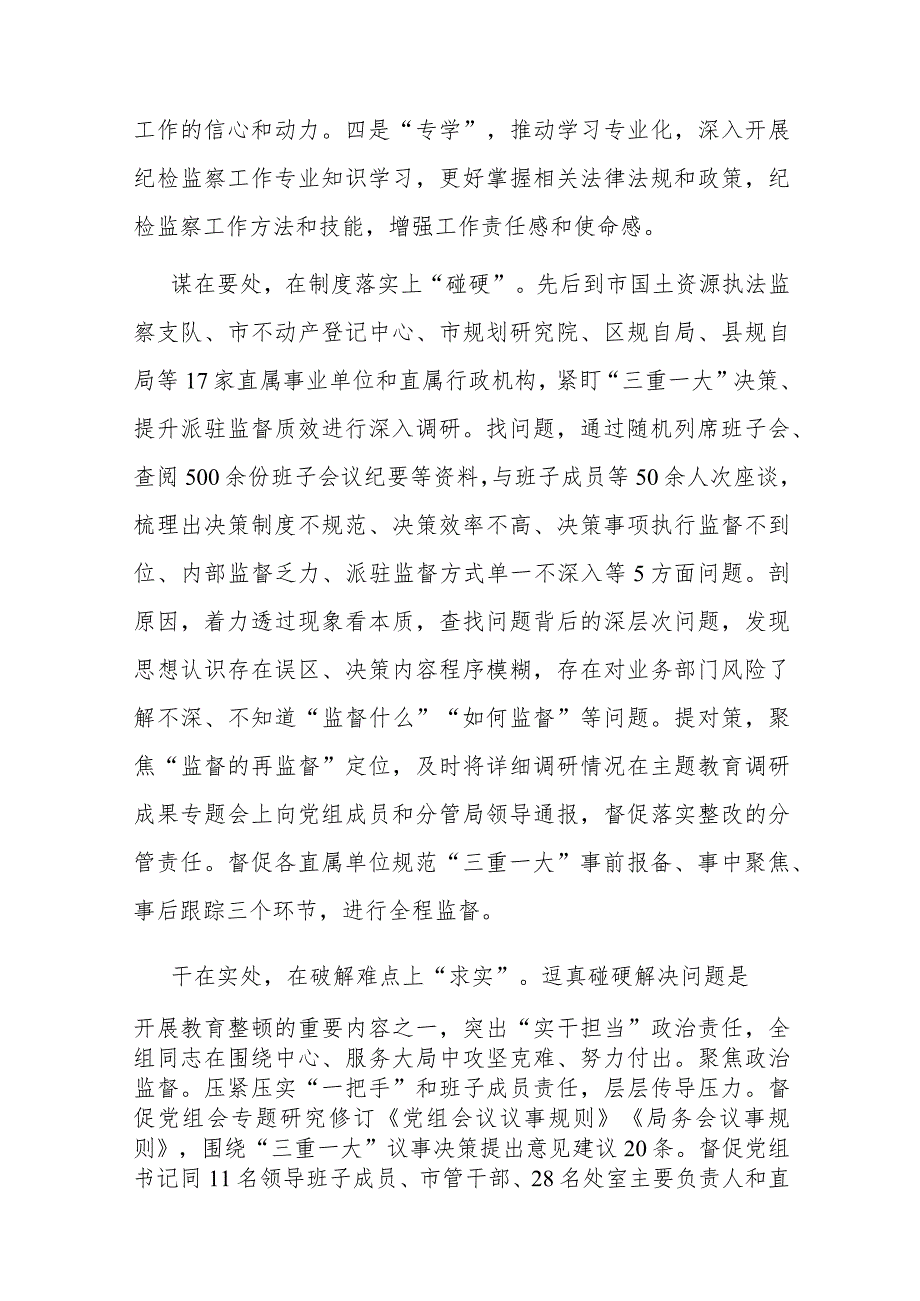 工作的信心和动力。四是“专学”，推动学习专业化，深入开展
纪检监察工作专业知识学习，更好掌握相关法律法规和政策，纪
检监察工作方法和技能，增强工作责任感和使命感。
谋在要处，在制度落实上“碰硬”。先后到市国土资源执法监
察支队、市不动产登记中心、市规划研究院、区规自局、县规自
局等 17 家直属事业单位和直属行政机构，紧盯“三重一大”决策、
提升派驻监督质效进行深入调研。找问题，通过随机列席班子会、
查阅 500 余份班子会议纪要等资料，与班子成员等 50 余人次座谈，
梳理出决策制度不规范、决策效率不高、决策事项执行监督不到
位、内部监督乏力、派驻监督方式单一不深入等 5 方面问题。剖
原因，着力透过现象看本质，查找问题背后的深层次问题，发现
思想认识存在误区、决策内容程序模糊，存在对业务部门风险了
解不深、不知道“监督什么”“如何监督”等问题。提对策，聚
焦“监督的再监督”定位，及时将详细调研情况在主题教育调研
成果专题会上向党组成员和分管局领导通报，督促落实整改的分
管责任。督促各直属单位规范“三重一大”事前报备、事中聚焦、
事后跟踪三个环节，进行全程监督。
干在实处，在破解难点上“求实”。逗真碰硬解决问题是
开展教育整顿的重要内容之一，突出“实干担当”政治责任，全
组同志在围绕中心、服务大局中攻坚克难、努力付出。聚焦政治
监督。压紧压实“一把手”和班子成员责任，层层传导压力。督
促党组会专题研究修订《党组会议议事规则》《局务会议事规
则》，围绕“三重一大”议事决策提出意见建议 20 条。督促党组
书记同 11 名领导班子成员、市管干部、28 名处室主要负责人和直